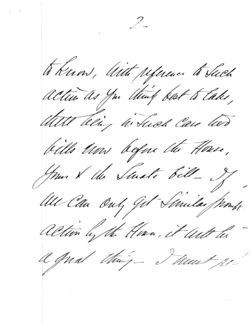 2
to know, with reference to such
action as you think best to take,
there being in such case two
bills now before the House,
yours & the Senate bill - If
we can only get similar prompt
action by the House, it will be
a great thing - I must